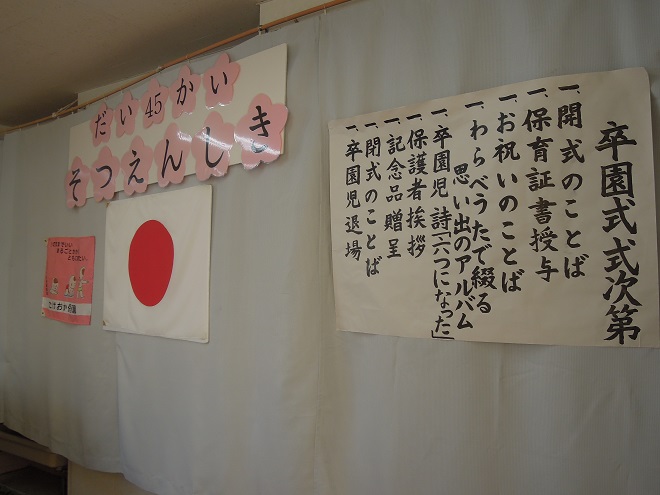 だい45かい
そつえんしき
卒園式式次第
一、開式のことば
一、保育証書授与
一、お祝いのことば
一、わらべうたで綴る
思い出のアルバム
一、卒園児 詩「六つになった」
一、保護者挨拶
一、記念品贈呈
一、閉式のことば
一、卒園児退場